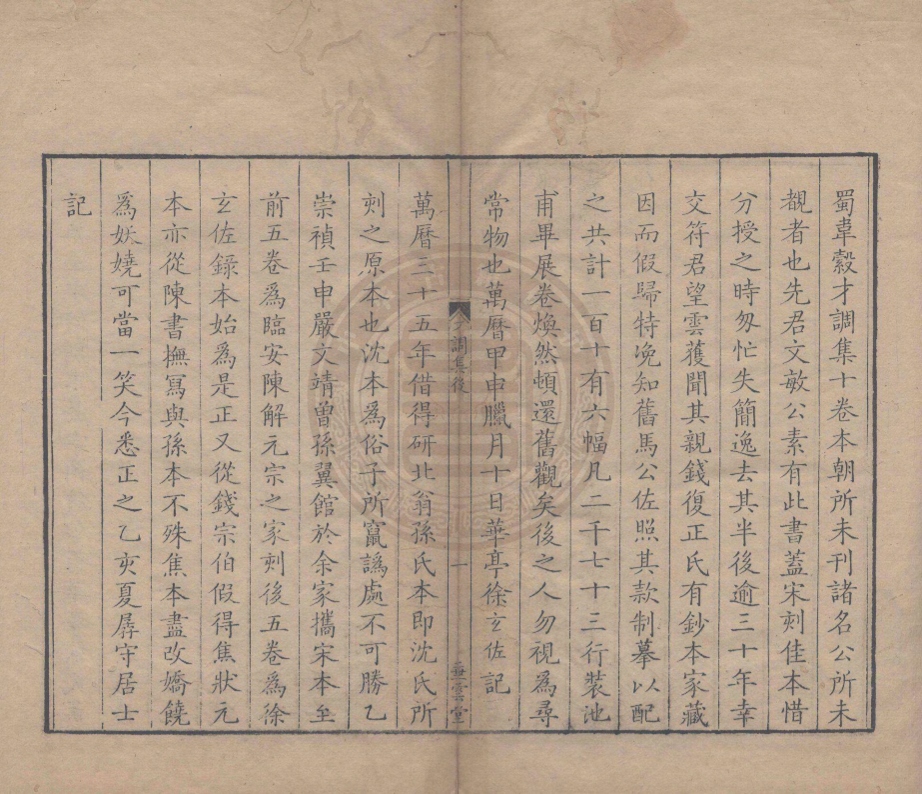 蜀韋縠才調集十卷本朝所未刊諸名公所未
覩者也先君文敏公素有此書蓋宋刻佳本惜
分授之時匆忙失簡逸去其半後逾三十年幸
交符君望雲獲聞其親錢復正氏有鈔本家藏
因而假歸特浼知舊馬公佐照其款制摹以配
之共計一百十有六幅凡二千七十三行裝池
甫畢展卷煥然頓還舊觀矣後之人勿視爲尋
常物也萬曆甲申臘月十日華亭徐玄佐記
才調集後
一
垂雲堂
萬曆三十五年借得研北翁孫氏本即沈氏所
刻之原本也沈本爲俗子所竄譌處不可勝乙
崇禎壬申嚴文靖曾孫翼館於余家攜宋本至
前五卷爲臨安陳解元宗之家刻後五卷爲徐
玄佐錄本始爲是正又從錢宗伯假得焦狀元
本亦從陳書撫冩與孫本不殊焦本盡改嬌饒
爲妖嬈可當一笑今悉正之乙亥夏孱守居士
記